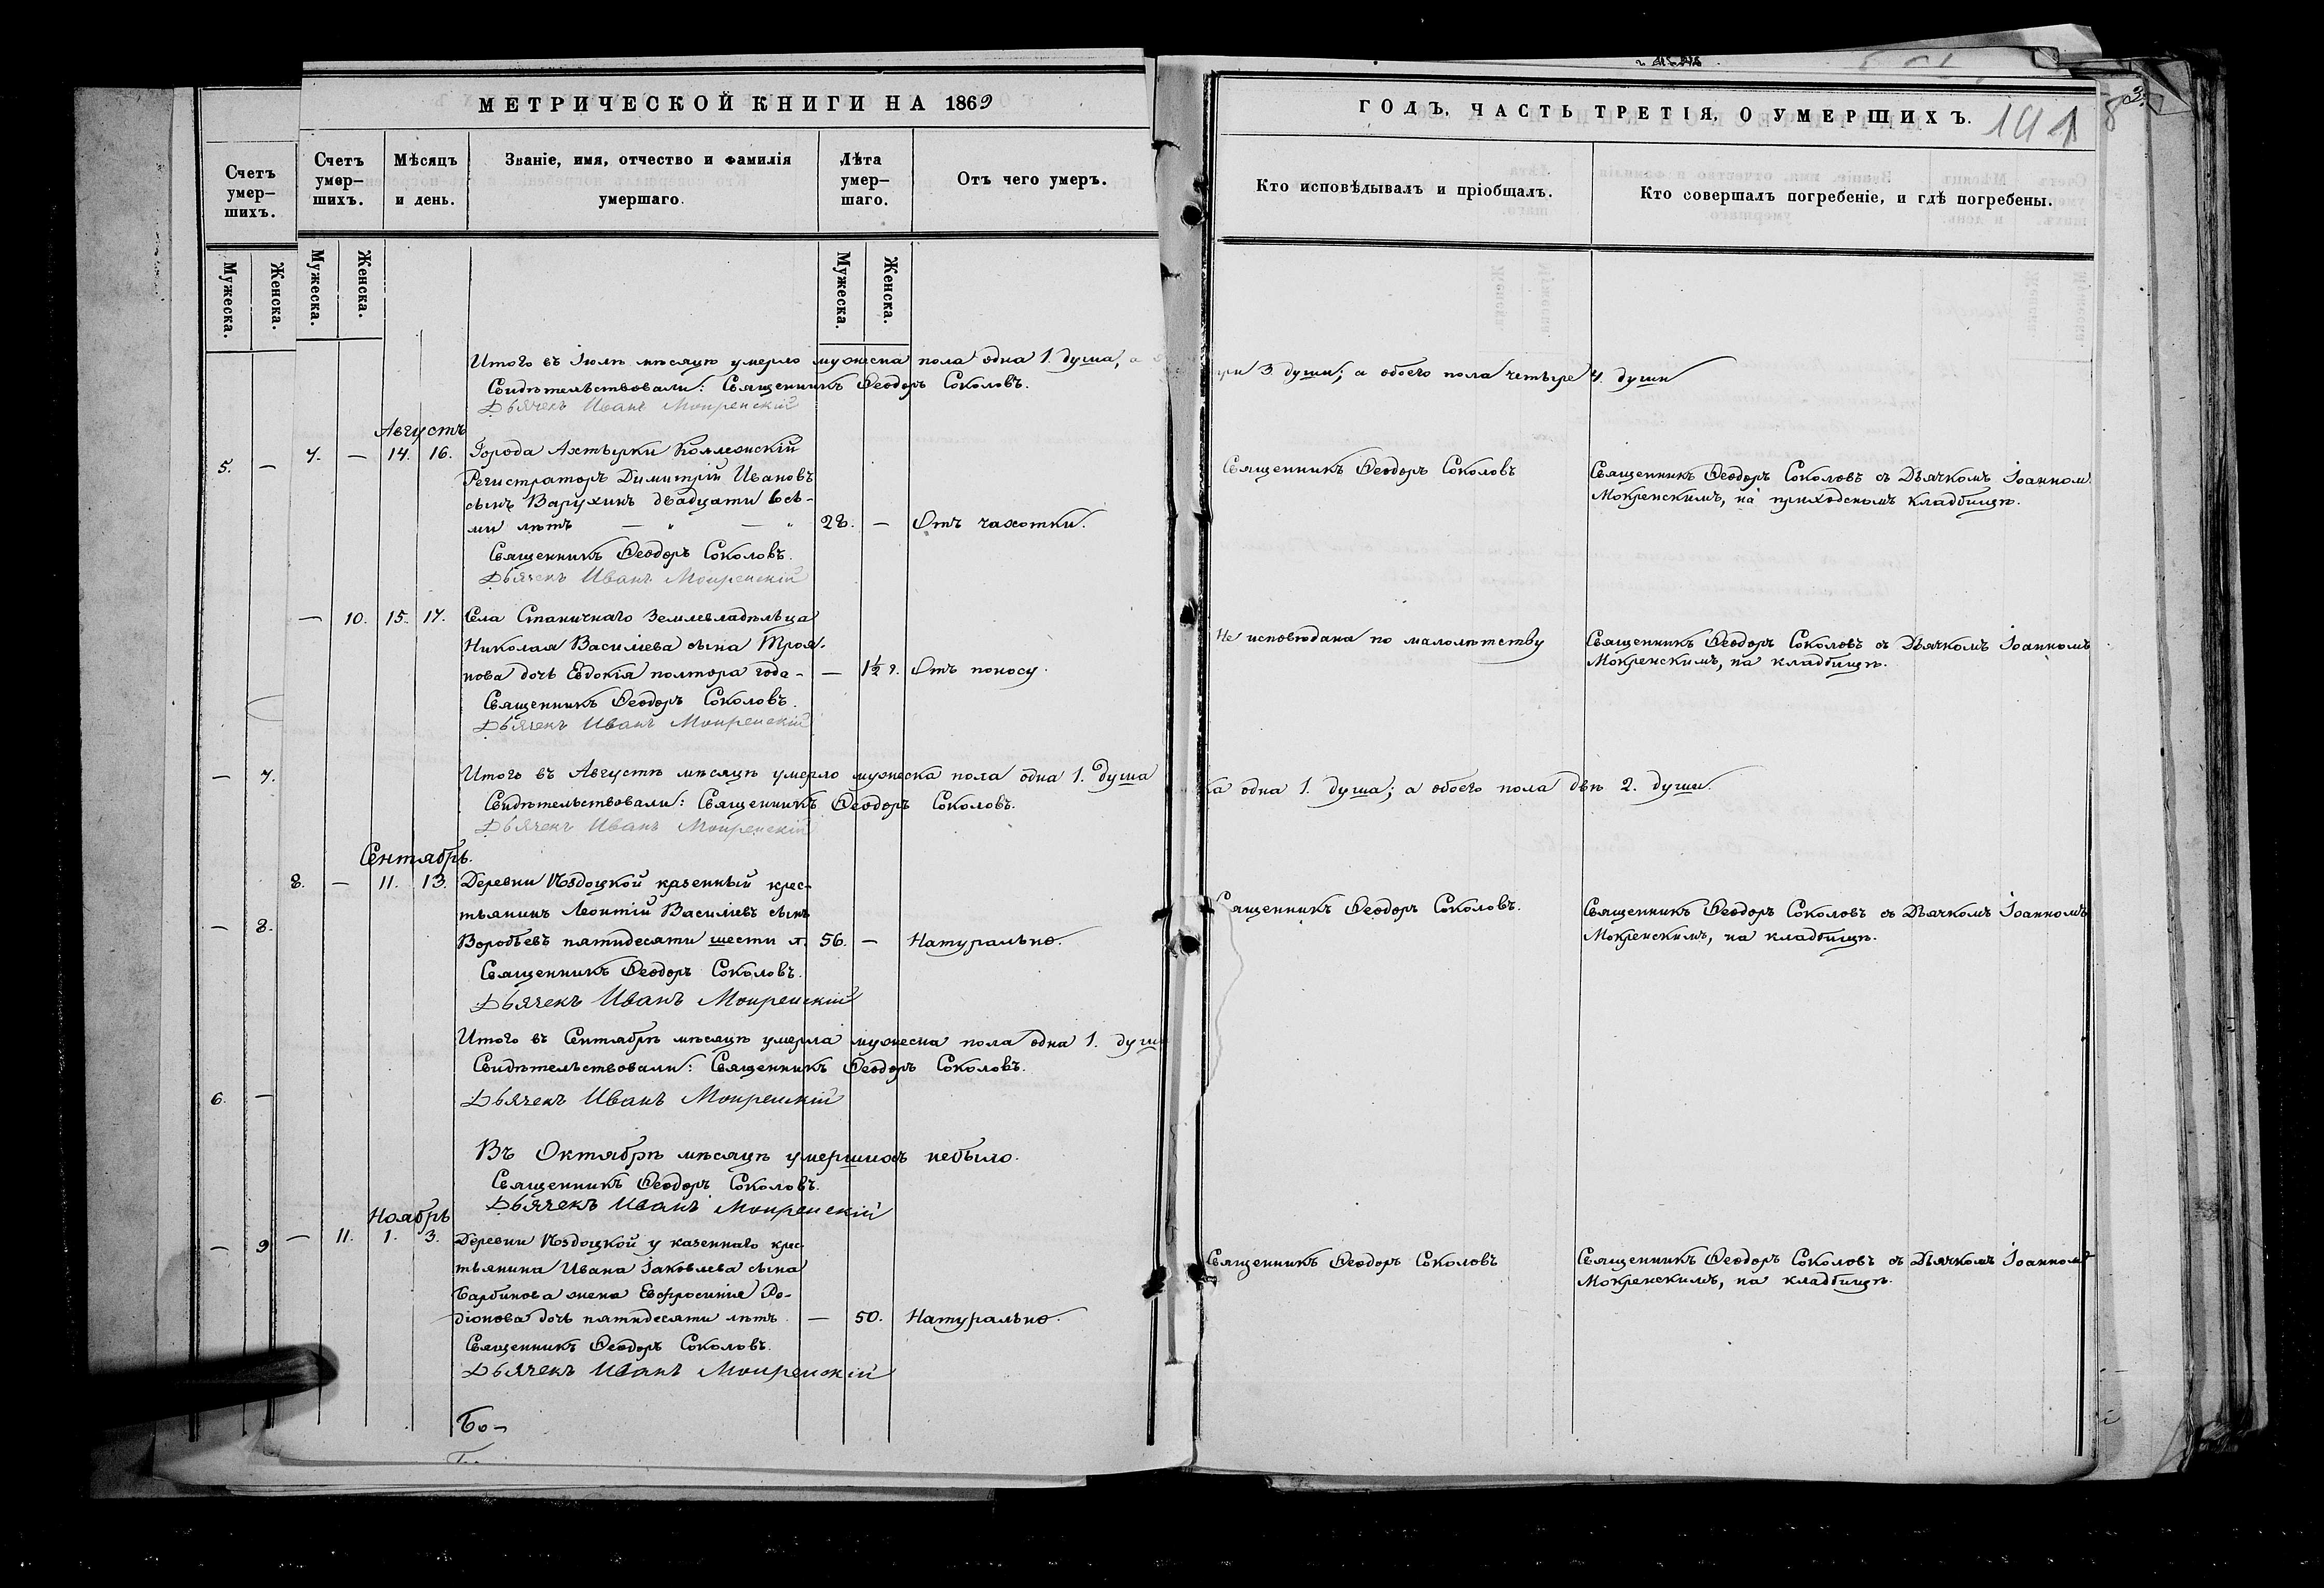 МЕТРИЧЕСКОЙ КНИГИ НА 1869
Счетъ умер-шихъ.
Счетъ умер-шихъ.
Мѣсяцъ и день.
Званіе, имя, отчество и фамилія умершаго.
Лѣта умер-шаго.
Отъ чего умеръ.
Мужеска.
Женска.
Мужеска.
Женска.
Мужеска.
Женска.
Итого въ Іюлѣ мѣсяцѣ умерло мужеска пола одна 1. душа, а
Свидѣтельствовали: Священникъ Ѳеодоръ Соколовъ.
Дьячекъ Иванъ Мокренскій
Августъ
5. —
7. — 14. 16. Города Ахтырки Коллежскій
Регистраторъ Димитрій Ивановъ
сынъ Варухинъ двадцати вось-
ми лѣтъ — " — " 28. — Отъ чахотки.
Священникъ Ѳеодоръ Соколовъ.
Дьячекъ Иванъ Мокренскій
— 10. 15. 17. Села Станичнаго Землевладѣльца
Николая Василіева сына Троя-
нова дочь Евдокія полтора года — — 1½ г. Отъ поносу.
Священникъ Ѳеодоръ Соколовъ.
Дьячекъ Иванъ Мокренскій
— 7.
Итого въ Августѣ мѣсяцѣ умерло мужеска пола одна 1. душа
Свидѣтельствовали: Священникъ Ѳеодоръ Соколовъ.
Дьячекъ Иванъ Мокренскій
Сентябрь.
8. — 11. 13. Деревни казенный крес-
тьянинъ Леонтій Василіевъ сынъ
— 8.
Воробьевъ пятидесяти шести л. 56. — Натурально.
Священникъ Ѳеодоръ Соколовъ.
Дьячекъ Иванъ Мокренскій
Итого въ Сентябрѣ мѣсяцѣ умерла мужеска пола одна 1. душ
Свидѣтельствовали: Священникъ Ѳеодоръ Соколовъ.
6. —
Дьячекъ Иванъ Мокренскій
Въ Октябрѣ мѣсяцѣ умершихъ небыло.
Священникъ Ѳеодоръ Соколовъ.
Дьячекъ Иванъ Мокренскій
Ноябрь
— 9
— 11. 1. 3. Деревни у казеннаго крес-
тьянина Ивана Іаковлева сына
Барбинова жена Евфросинія Ро-
діонова дочь пятидесяти лѣтъ — 50. Натурально.
Священникъ Ѳеодоръ Соколовъ.
Дьячекъ Иванъ Мокренскій
Бо-
ГОДЪ, ЧАСТЬ ТРЕТІЯ, О УМЕРШИХЪ.
Кто исповѣдывалъ и пріобщалъ.
Кто совершалъ погребеніе, и гдѣ погребены.
три 3 души; а обоего пола четыре 4. души
Священникъ Ѳеодоръ Соколовъ
Священникъ Ѳеодоръ Соколовъ съ Дьячкомъ Іоанном
Мокренскимъ, на приходскомъ кладбищѣ.
Не исповѣдана по малолѣтству
Священникъ Ѳеодоръ Соколовъ съ Дьячкомъ Іоанномъ
Мокренскимъ, на кладбищѣ.
ка одна 1. душа; а обоего пола двѣ 2. души.
Священникъ Ѳеодоръ Соколовъ.
Священникъ Ѳеодоръ Соколовъ съ Дьячкомъ Іоанномъ
Мокренскимъ, на кладбищѣ.
Священникъ Ѳеодоръ Соколовъ
Священникъ Ѳеодоръ Соколовъ съ Дьячкомъ Іоанномъ
Мокренскимъ, на кладбищѣ.